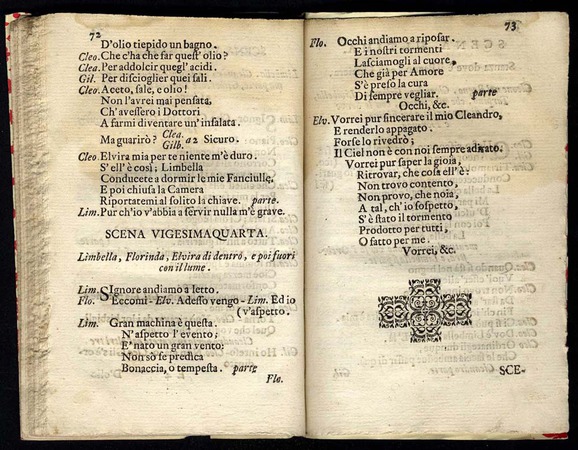 72
D'olio tiepido un bagno.
Cleo. Che c'ha che far quest' olio?
Clea. Per addolcir quegl' acidi.
Gil. Per discioglier quei sali.
Cleo. Aceto, sale, e olio!
Non l'avrei mai pensata,
Ch'avessero i Dottori
A farmi diventare un'insalata.
Ma guarirò? Clea. Gilb. a 2 Sicuro.
Cleo Elvira mia per te niente m'è duro.
S'ell'è così; Limbella
Conducete a dormir le mie Fanciulle,
E poi chiusa la Camera
Riportatemi al solito la chiave. parte.
Lim. Pur ch'io v'abbia a servir nulla m'è grave.
SCENA VIGESIMAQUARTA.
Limbella, Florinda, Elvira di dentro, e poi fuori
con il lume.
Lim. SIgnore andiamo a letto.
Flo. Eccomi- Elv. Adesso vengo- Lim. Ed io
(v'aspetto.
Lim. Gran machina è questa.
N'aspetto l'evento;
E' nato un gran vento:
Non sò se predica
Bonaccia, o tempesta. parte
Flo.
73
Flo. Occhi andiamo a riposar.
E i nostri tormenti
Lasciamogli al cuore,
Che già per Amore
S'è preso la cura
Di sempre vegliar. parte
Occhi, &c.
Elv. Vorrei pur sincerare il mio Cleandro,
E renderlo appagato.
Forse lo rivedrò;
Il Ciel non è con noi sempre adirato.
Vorrei pur saper la gioia,
Ritrovar, che cosa ell'è.
Non trovo contento,
Non provo, che noia,
A tal, ch'io sospetto,
S'è stato il tormento
Prodotto per tutti,
O fatto per me.
Vorrei, &c.
SCE-